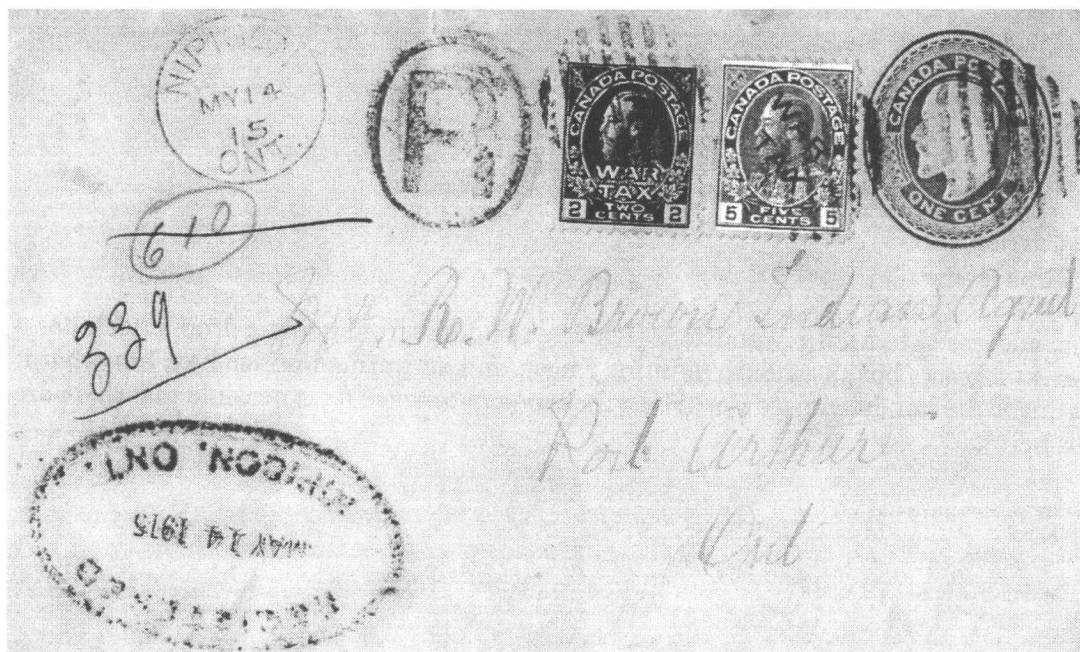 NIPIGON
MY 14
15
ONT.
R
CANADA POSTAGE
WAR
TAX
2 TWO CENTS 2
CANADA POSTAGE
5 FIVE CENTS 5
CANADA POSTAGE
ONE CENT
610
339
R. W. Brown Indian Agent
Port Arthur
Ont
NIPIGON, ONT.
MAY 14 1915
REGISTERED